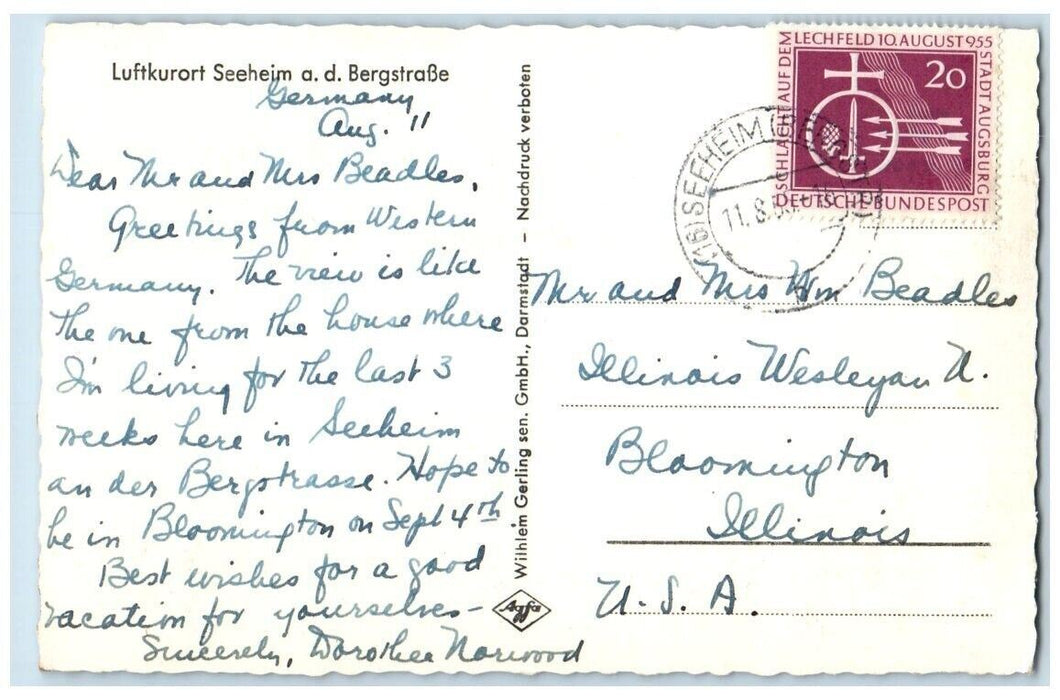 Luftkurort Seeheim a. d. Bergstraße
Germany
Aug. 11
Dear Mr and Mrs Beadles,
Greetings from Western
Germany. The view is like
the one from the house where
I'm living for the last 3
weeks here in Seeheim
an der Bergstrasse. Hope to
be in Bloomington on Sept 4th
Best wishes for a good
vacation for yourselves-
Sincerely, Dorothea Norwood
Wilhleim Gerling sen. GmbH., Darmstadt - Nachdruck verboten
Agfa
SCHLACHT AUF DEM
LECHFELD 10. AUGUST 955
STADT AUGSBURG
20
DEUTSCHE BUNDESPOST
(16) SEEHEIM
11.8.
Mr and Mrs Wm Beadles
Illinois Wesleyan U.
Bloomington
Illinois
U.S.A.